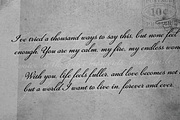 I've tried a thousand ways to say this, but none feel
enough. You are my calm, my fire, my endless won
With you, life feels fuller, and love becomes not
but a world I want to live in, forever and ever.